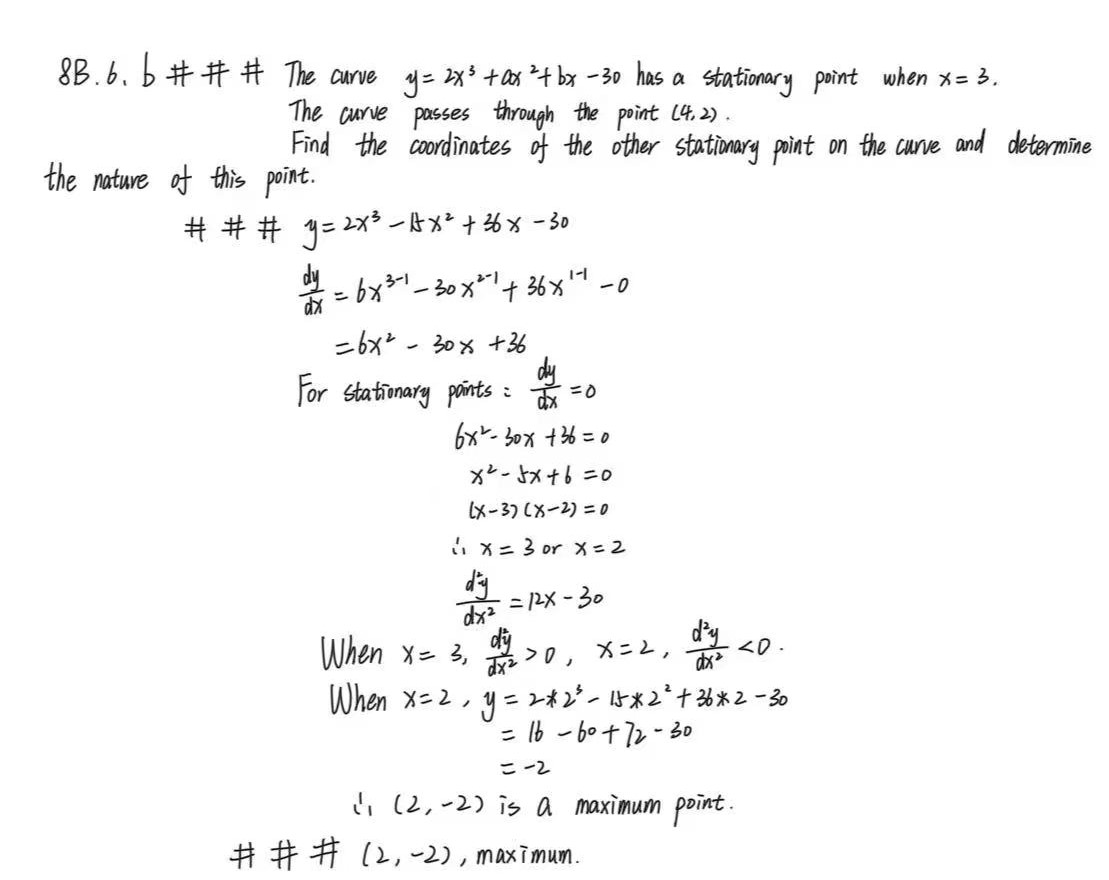 8B.6. b # # # The curve y = 2x³ + ax² + bx - 30 has a stationary point when x = 3.
The curve passes through the point (4,2).
Find the coordinates of the other stationary point on the curve and determine
the nature of this point.
# # # y = 2x³ - 15x² + 36x - 30
dy/dx = 6x³⁻¹ - 30x²⁻¹ + 36x¹⁻¹ - 0
= 6x² - 30x + 36
For stationary points : dy/dx = 0
6x² - 30x + 36 = 0
x² - 5x + 6 = 0
(x-3)(x-2) = 0
∴ x = 3 or x = 2
d²y/dx² = 12x - 30
When x = 3, d²y/dx² > 0, x = 2, d²y/dx² < 0.
When x = 2, y = 2*2³ - 15*2² + 36*2 - 30
= 16 - 60 + 72 - 30
= -2
∴ (2,-2) is a maximum point.
# # # (2,-2), maximum.